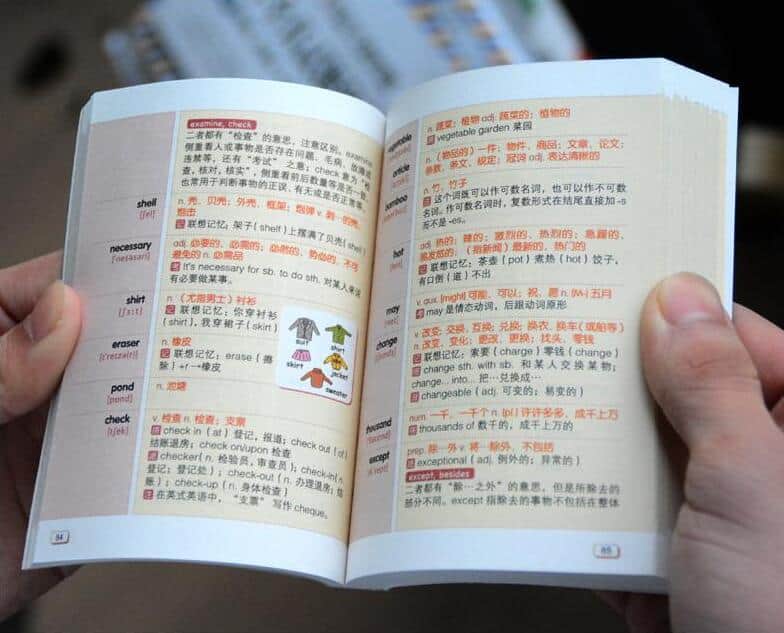 examine, check
二者都有“检查”的意思，注意区别。examine
侧重看人或事物是否存在问题、毛病、故障或
违禁等，还有“考试”之意；check 意为“检
查，核对，核实”，侧重看前后数量等是否一致，
也常用于判断事物的正误、有无或是否正常等。
shell
[ʃel]
n. 壳、贝壳；外壳、框架；炮弹 v. 剥…的壳、
炮击
记 联想记忆：架子（shelf）上摆满了贝壳（shell）
necessary
['nesəsəri]
adj. 必要的、必需的；必然的、势必的、不可
避免的 n. 必需品
考 It's necessary for sb. to do sth. 对某人来说
有必要做某事。
shirt
[ʃɜːt]
n.（尤指男士）衬衫
记 联想记忆：你穿衬衫
（shirt），我穿裙子（skirt）
suit
shirt
skirt
jacket
sweater
eraser
n. 橡皮
记 联想记忆：erase（擦
除）+r→橡皮
pond
[pɒnd]
n. 池塘
check
[tʃek]
v. 检查 n. 检查；支票
搭 check in（at）登记，报道；check out（of）
结账退房；check on/upon 检查
派 checker(n. 检验员，审查员)；check-in(n.
登记；登记处)；check-out（n. 办理退房；结
账）；check-up（n. 身体检查）
注 在英式英语中，“支票”写作 cheque。
84
vegetable
n. 蔬菜；植物 adj. 蔬菜的；植物的
搭 vegetable garden 菜园
article
n.（物品的）一件；物件、商品；文章、论文；
条款、条文、规定；冠词 adj. 表达清晰的
bamboo
n. 竹，竹子
这个词既可以作可数名词，也可以作不可数
名词。作可数名词时，复数形式在结尾直接加 -s
而不是 -es。
hot
adj. 热的；辣的；激烈的、热烈的；急躁的、
易发怒的；（指新闻）最新的、热门的
记 联想记忆：茶壶（pot）煮热（hot）饺子，
有口倒（道）不出
may
v. aux. [might] 可能、可以；祝、愿 n. [M-] 五月
考 may 是情态动词，后跟动词原形
change
v. 改变；交换、互换；兑换；换衣、换车（或船等）
n. 改变、变化；更改、更换；找头、零钱
记 联想记忆：索要（charge）零钱（change）
搭 change sth. with sb. 和某人交换某物；
change... into... 把…兑换成…
派 changeable（adj. 可变的；易变的）
thousand
num. 一千，一千个 n. [pl.] 许许多多、成千上万
搭 thousands of 数千的，成千上万的
except
prep. 除…外 v. 将…除外、不包括
派 exceptional（adj. 例外的；异常的）
except, besides
二者都有“除…之外”的意思，但是所除去的
部分不同。except 指除去的事物不包括在整体
85